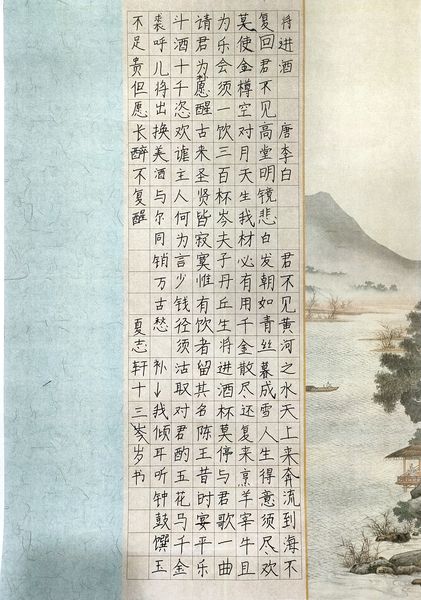 将进酒 唐李白 君不见黄河之水天上来奔流到海不
复回君不见高堂明镜悲白发朝如青丝暮成雪人生得意须尽欢
莫使金樽空对月天生我材必有用千金散尽还复来烹羊宰牛且
为乐会须一饮三百杯岑夫子丹丘生将进酒杯莫停与君歌一曲
请君为愿醒古来圣贤皆寂寞惟有饮者留其名陈王昔时宴平乐
斗酒十千恣欢谑主人何为言少钱径须沽取对君酌五花马千金
裘呼儿将出换美酒与尔同销万古愁 补↓我倾耳听钟鼓馔玉
不足贵但愿长醉不复醒 夏志轩十三岑岁书